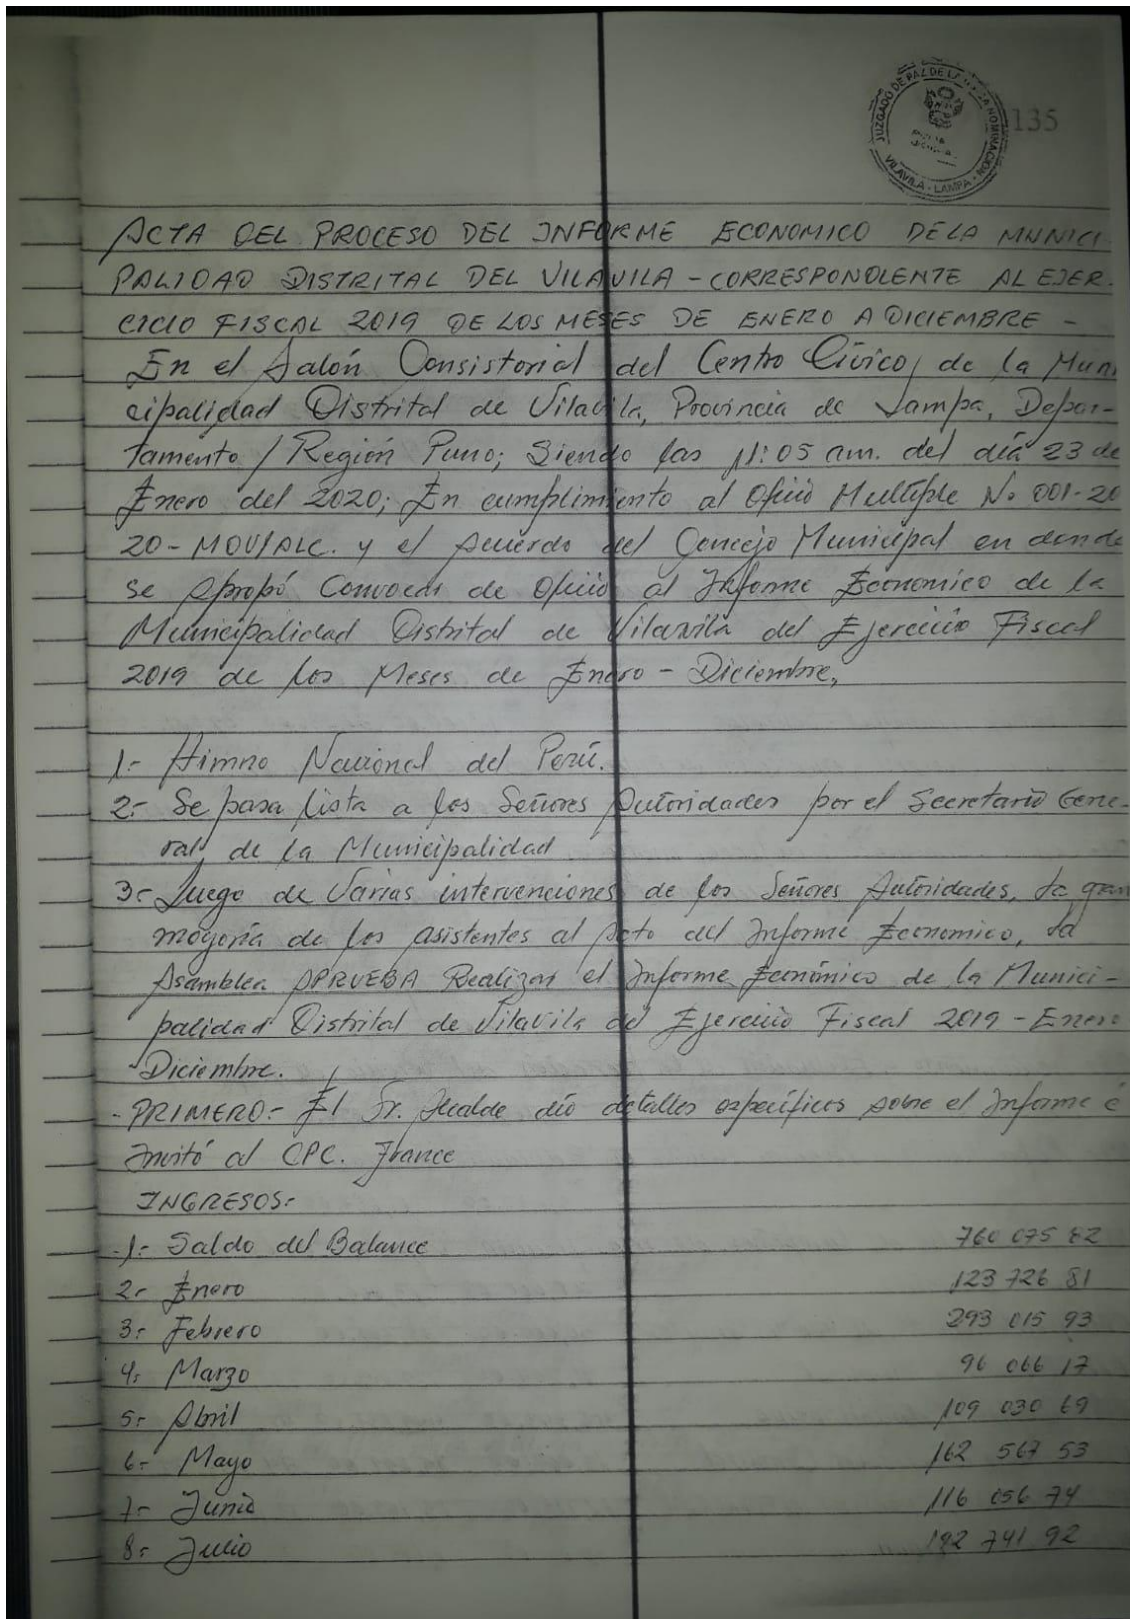 JUZGADO DE PAZ DE NOMINACION
VILAVILA - LAMPA -
135
ACTA DEL PROCESO DEL INFORME ECONOMICO DE LA MUNICI
PALIDAD DISTRITAL DEL VILAVILA - CORRESPONDIENTE AL EJER-
CICIO FISCAL 2019 DE LOS MESES DE ENERO A DICIEMBRE -
En el Salón Consistorial del Centro Cívico, de la Muni
cipalidad Distrital de Vilavila, Provincia de Lampa, Depar-
tamento / Región Puno; Siendo las 11:05 am. del día 23 de
Enero del 2020; En cumplimiento al Oficio Multiple No 001-20
20-MDV/ALC. y el Acuerdo del Concejo Municipal en donde
se Aprobó Convocar de Oficio al Informe Economico de la
Municipalidad Distrital de Vilavila del Ejercicio Fiscal
2019 de los Meses de Enero - Diciembre,
1.- Himno Nacional del Perú.
2.- Se pasa lista a los Señores Autoridades por el Secretario Gene-
ral, de la Municipalidad
3.- Luego de Varias intervenciones de los Señores Autoridades, la gran
mayoría de los asistentes al Acto del Informe Economico, la
Asamblea APRUEBA Realizar el Informe Económico de la Munici-
palidad Distrital de Vilavila del Ejercicio Fiscal 2019 - Enero
Diciembre.
- PRIMERO.- El Sr. Alcalde dió detalles específicos sobre el Informe é
Invitó al CPC. France
INGRESOS:
1.- Saldo del Balance 760 075 82
2.- Enero 123 726 81
3.- Febrero 293 015 93
4.- Marzo 96 066 17
5.- Abril 109 030 69
6.- Mayo 162 567 53
7.- Junio 116 056 74
8.- Julio 192 741 92